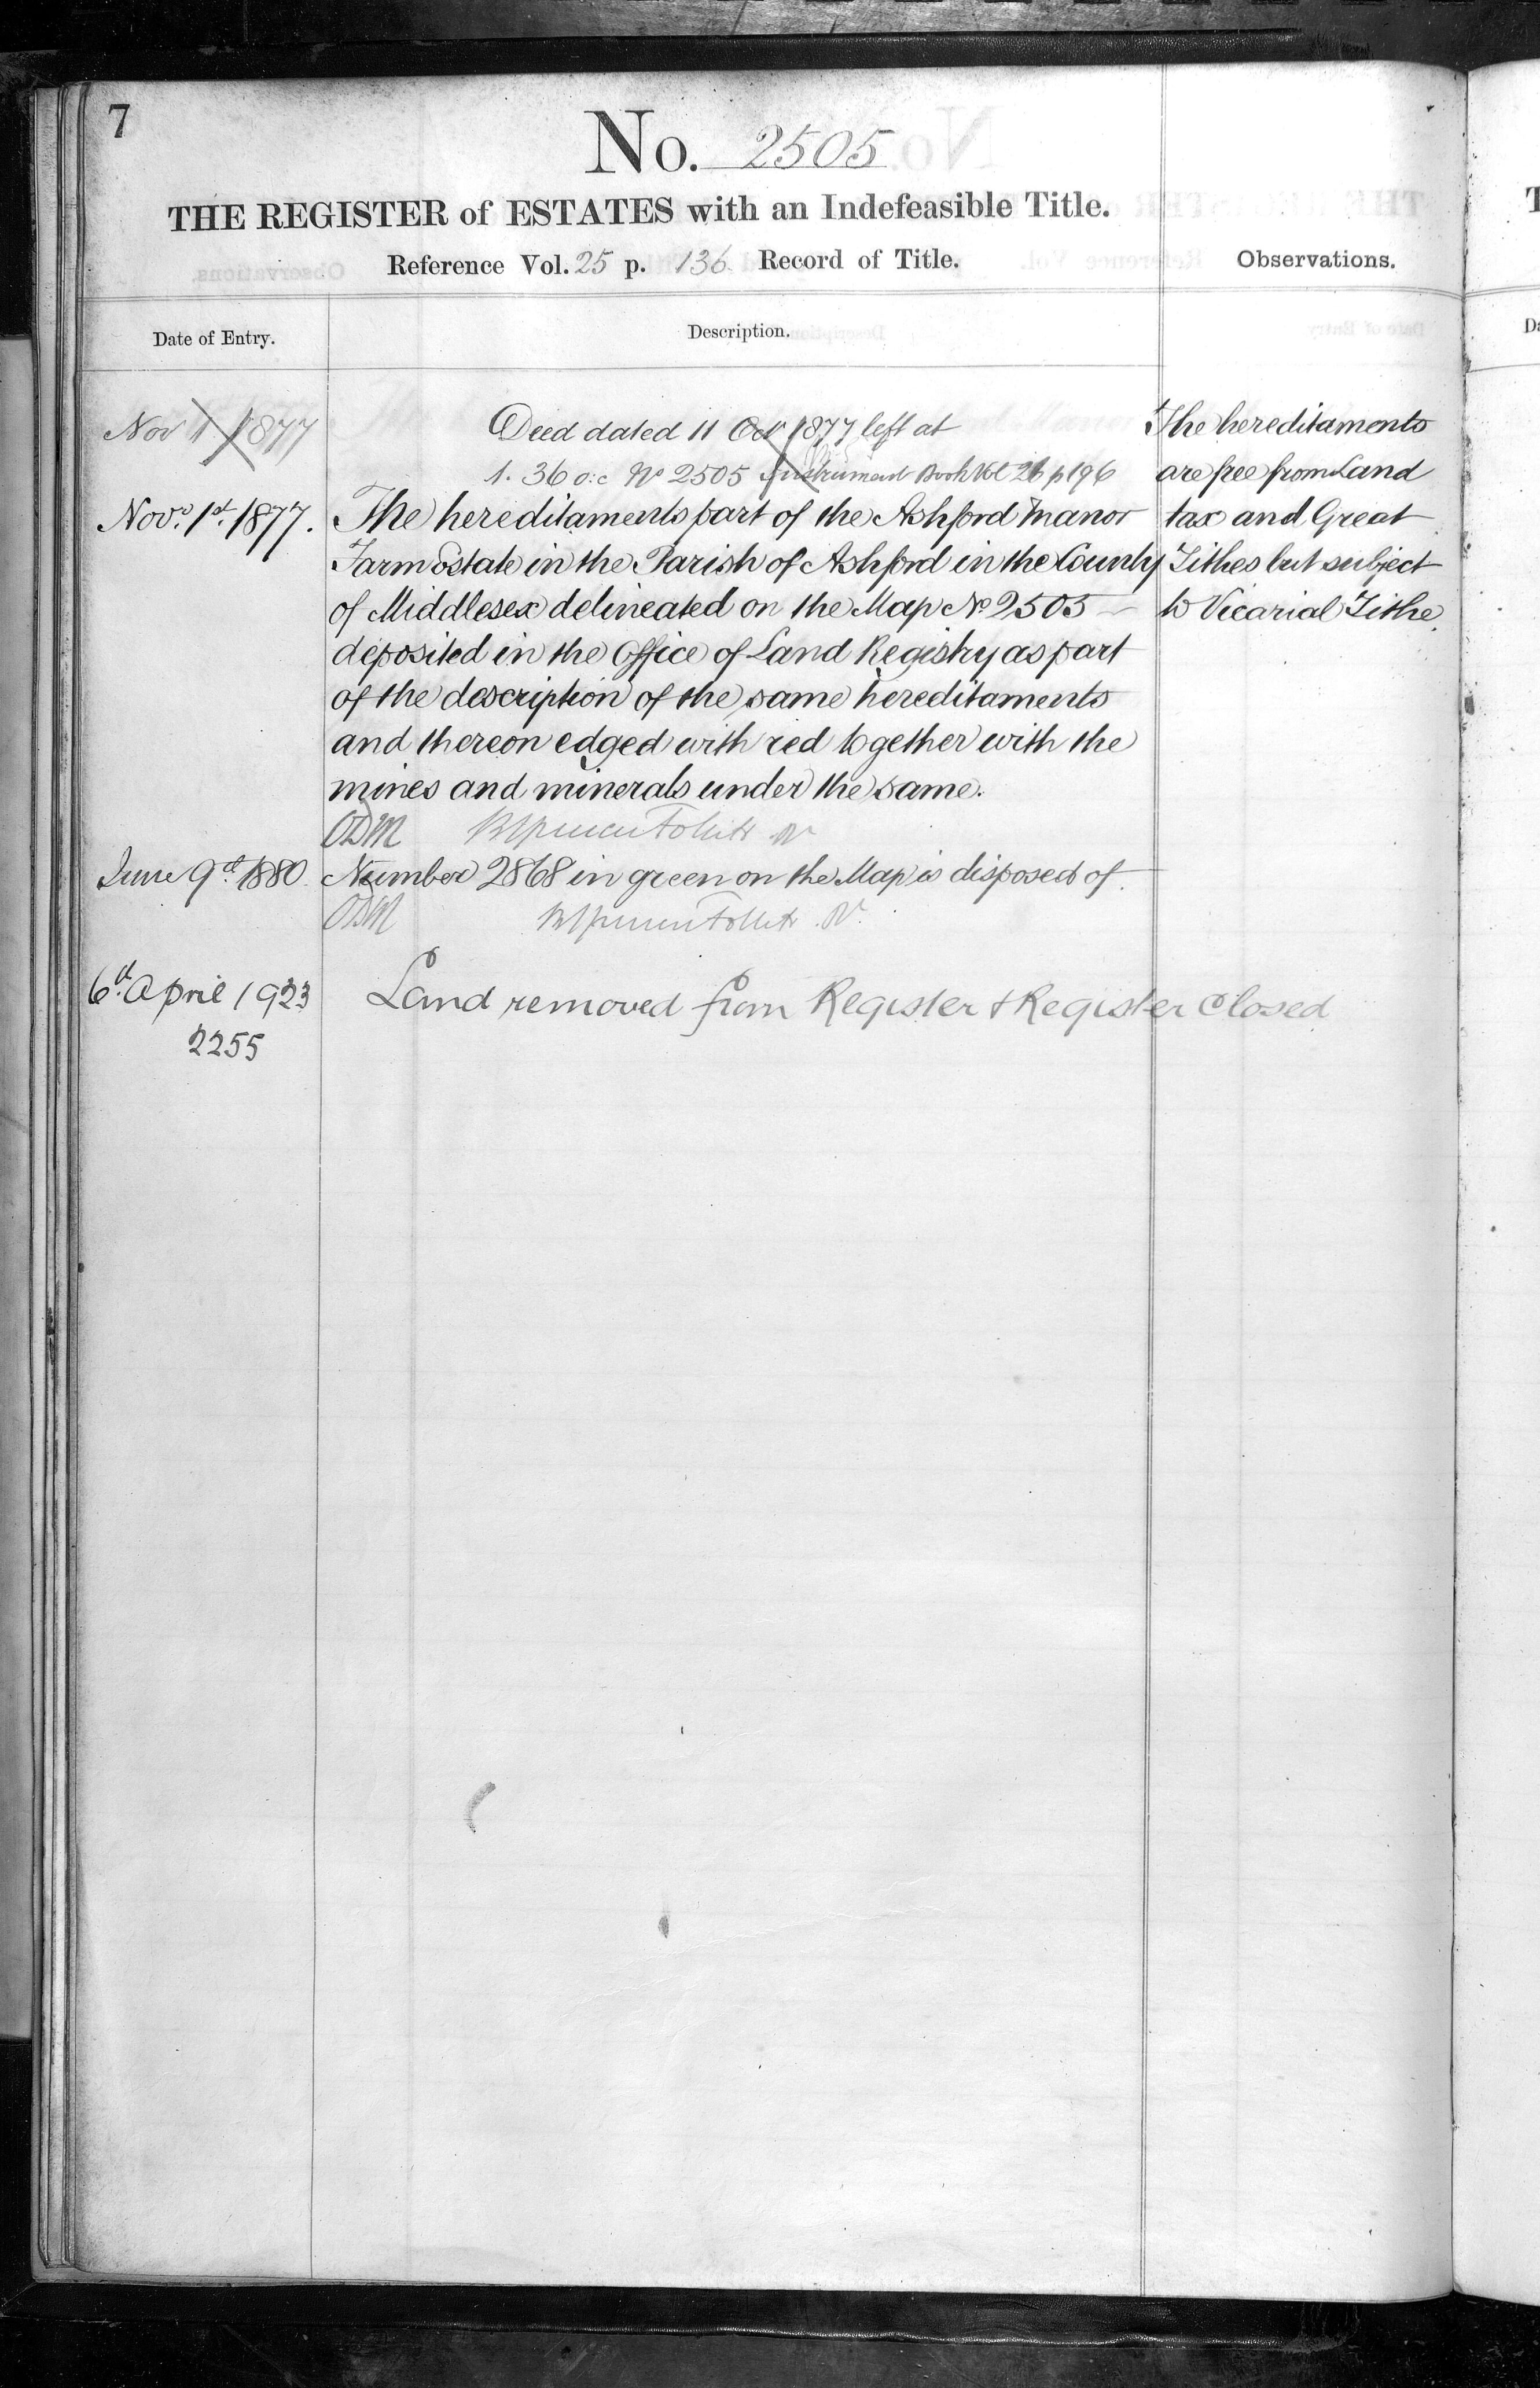 7
No. 2505
THE REGISTER of ESTATES with an Indefeasible Title.
Reference Vol. 25 p. 136 Record of Title.
Observations.
Date of Entry.
Description.
Nov 1 1877
Deed dated 11 Oct 1877 left at
1. 36 o:c No 2505 Instrument Book Vol 26 p 196
Novr. 1st. 1877.
The hereditaments part of the Ashford Manor
Farm Estate in the Parish of Ashford in the County
of Middlesex delineated on the Map No 2505
deposited in the Office of Land Registry as part
of the description of the same hereditaments
and thereon edged with red together with the
mines and minerals under the same.
The hereditaments
are free from Land
tax and Great
Tithes but subject
to Vicarial Tithe.
June 9th 1880
Number 2868 in green on the Map is disposed of.
6th April 1923
2255
Land removed from Register & Register Closed